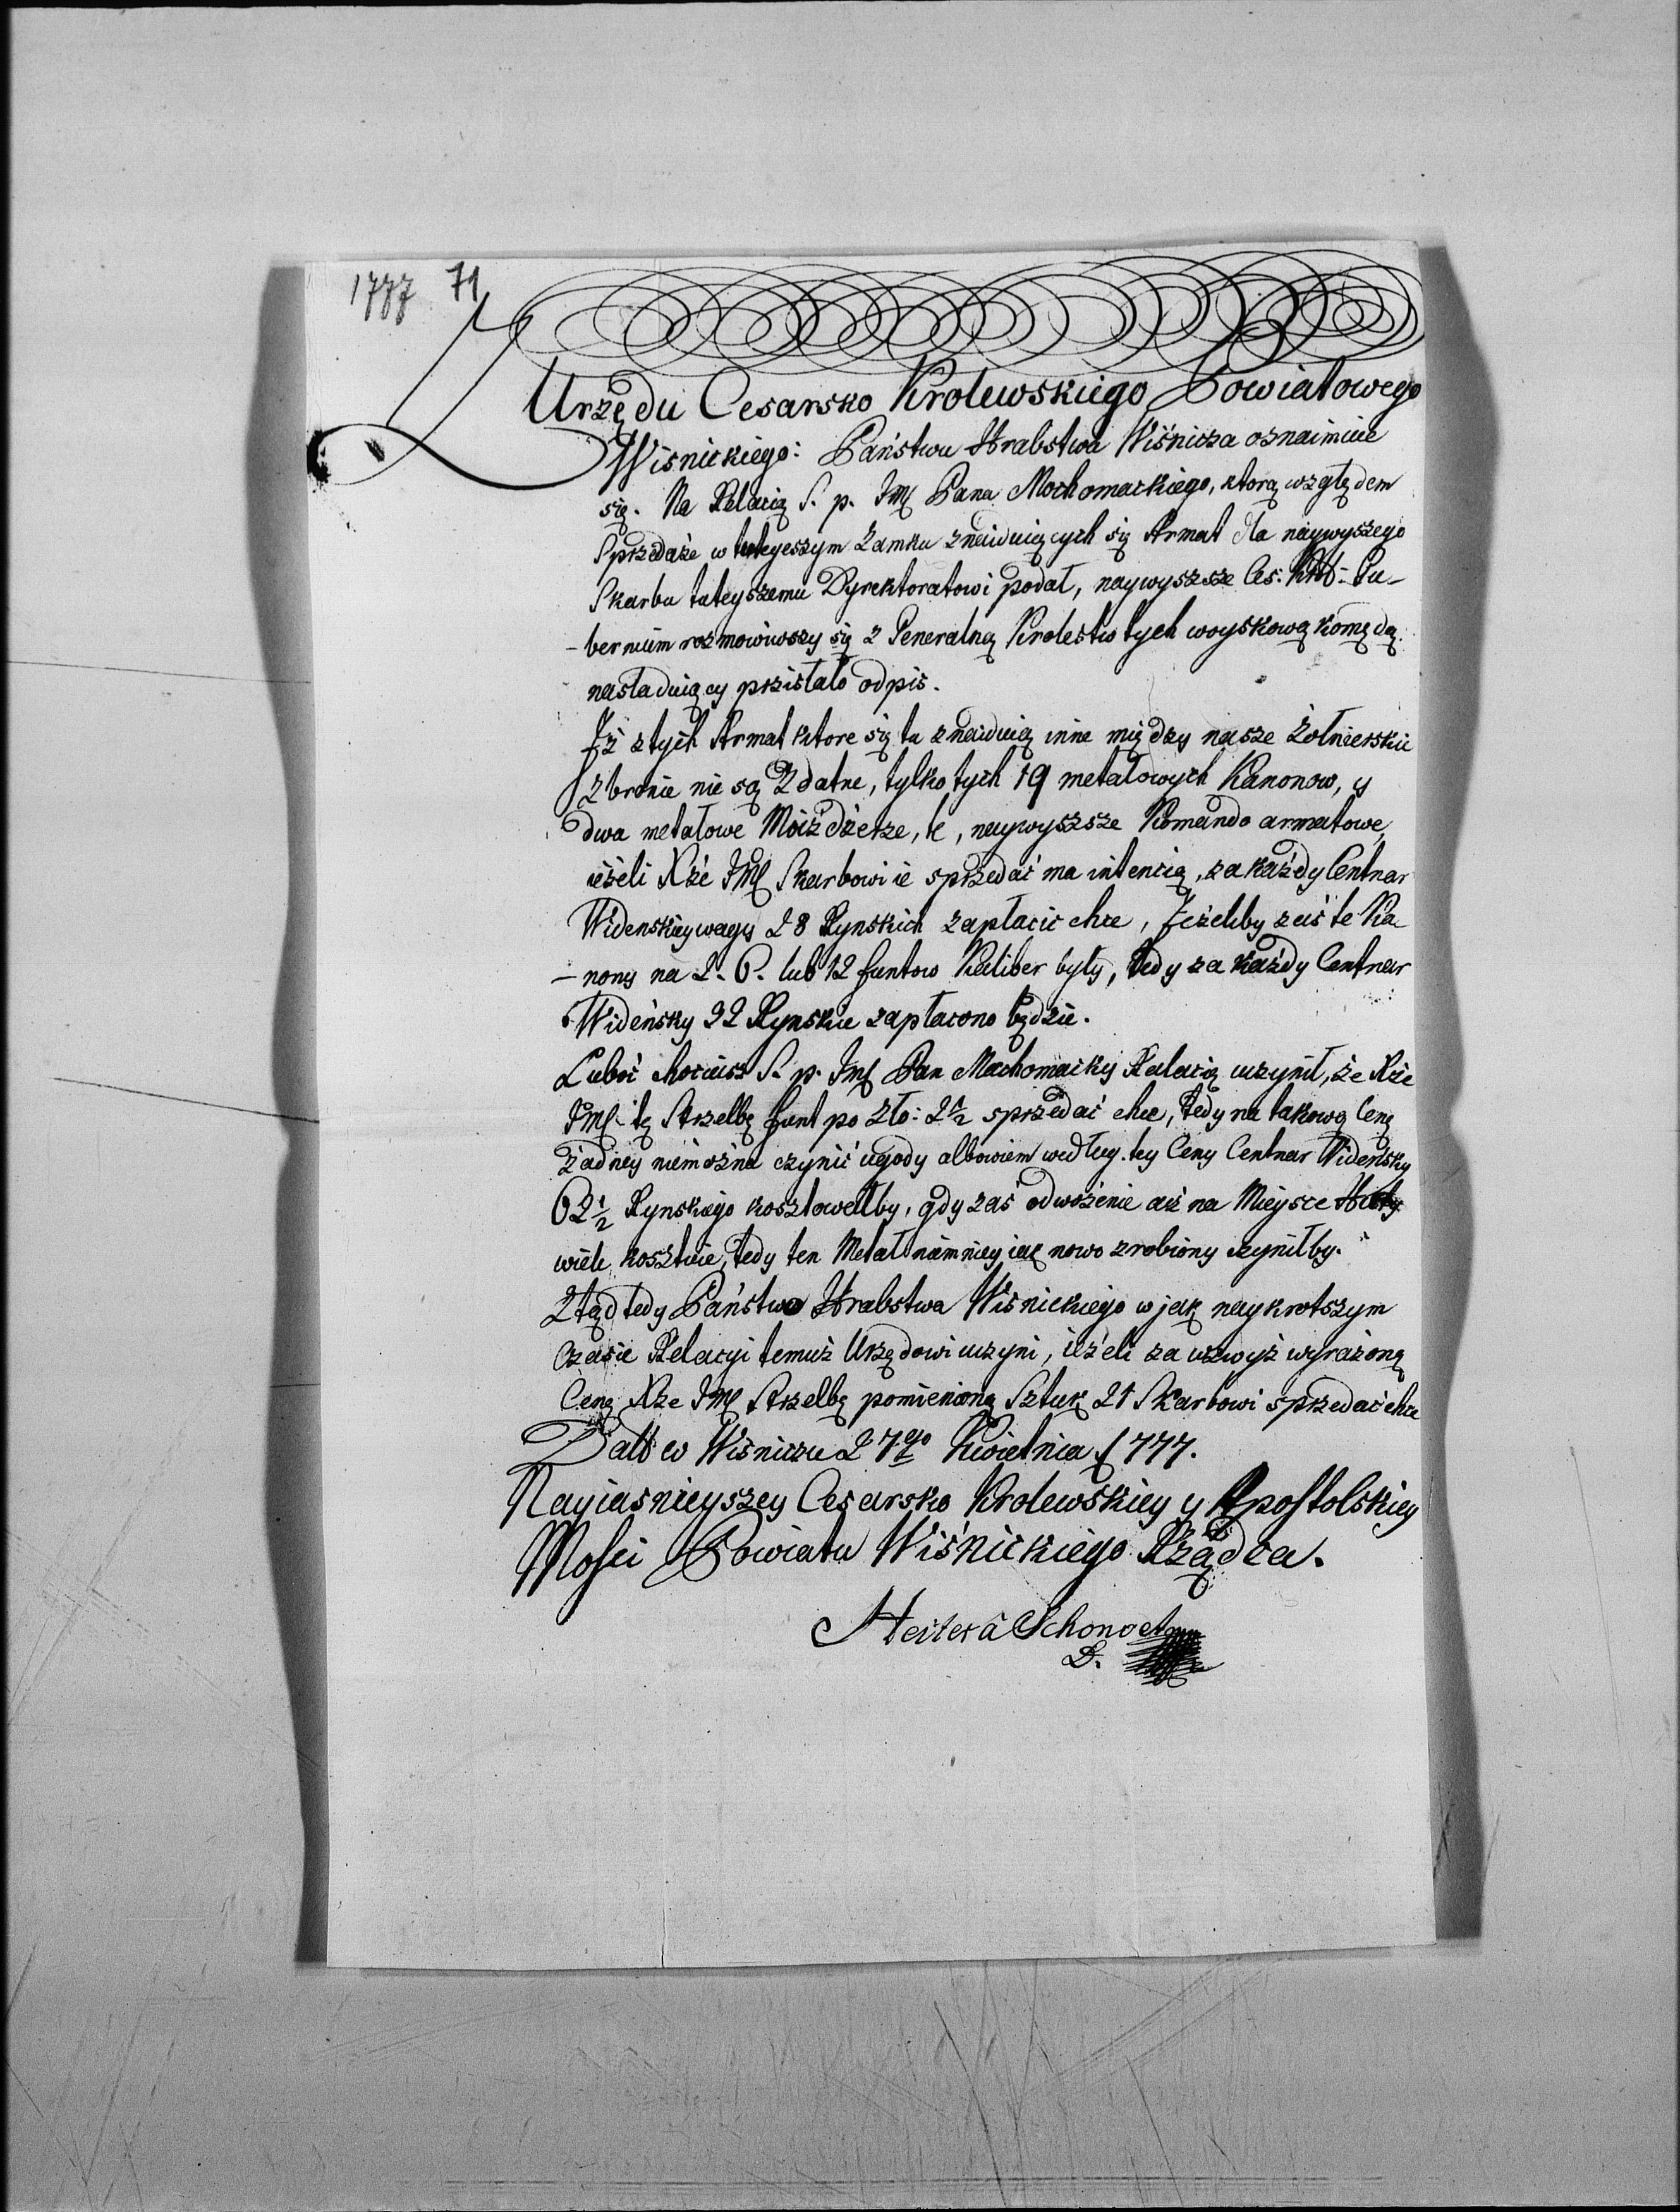 1777 71
Z
Urzędu Cesarsko Krolewskiego Powiatowego
Wisnickiego: Państwu Hrabstwa Wiśnicza oznaimuie
się. Na Relacią S. p. JMć Pana Mochomackiego, ktorą względem
Sprzedaże w tuteyeszym Zamku znaiduiących się Armat dla naywyszego
Skarbu tuteyszemu Dyrektoratowi podał, naywyszsze Ces: Krol: Gu-
-bernium rozmowiwszy się z Generalną Krolestw tych woyskową komędą
nasladuiący przisłało odpis.
Iż z tych Armat ktore się tu znaiduią inne między nasze Żołnierskie
zbronie nie są Zdatne, tylko tych 19 metalowych Kanonow, y
dwa metalowe Moiździerze, te, naywyszsze Komando armatowe,
ieżeli Xże JMć Skarbowi ie sprzedać ma intencią, za każdy Centnar
Widenskiey wagy 28 Rynskich zapłacic chce, Jeżeliby zaś te Ka-
-nony na 2. 6. lub 12 funtow Kaliber były, tedy za każdy Centnar
Wideńsky 32 Rynskie zapłacono będzie.
Luboć chociasz S. p. JMć Pan Machomacky Relacią uczynił, że Xże
JMć tę Strzelbę funt po Zło: 2½ sprzedać chce, tedy na takową Cenę
żadney niemożna czynić ugody albowiem według tey Ceny Centnar Wideńsky
62½ Rynskiego kosztowałby, gdy zaś odwożenie aż na Mieysce Huty
wiele kosztuie, tedy ten Metal niemniey iak nowo zrobiony czyniłby.
Ztąd tedy Państwo Hrabstwa Wisnickiego w jak naykrotszym
Czasie Relacyi temuż Urzędowi uczyni, ieżeli za wzwyż wyrażoną
Cenę Xże JMć Strzelbę pomienioną Sztuk 21 Skarbowi sprzedać chce
Datt w Wiśniczu 27ego Kwietnia 1777.
Nayiasnieyszey Cesarsko Krolewskiey y Apostolskiey
Mości Powiatu Wiśnickiego Rządca.
Heiter â Schonvet
D.